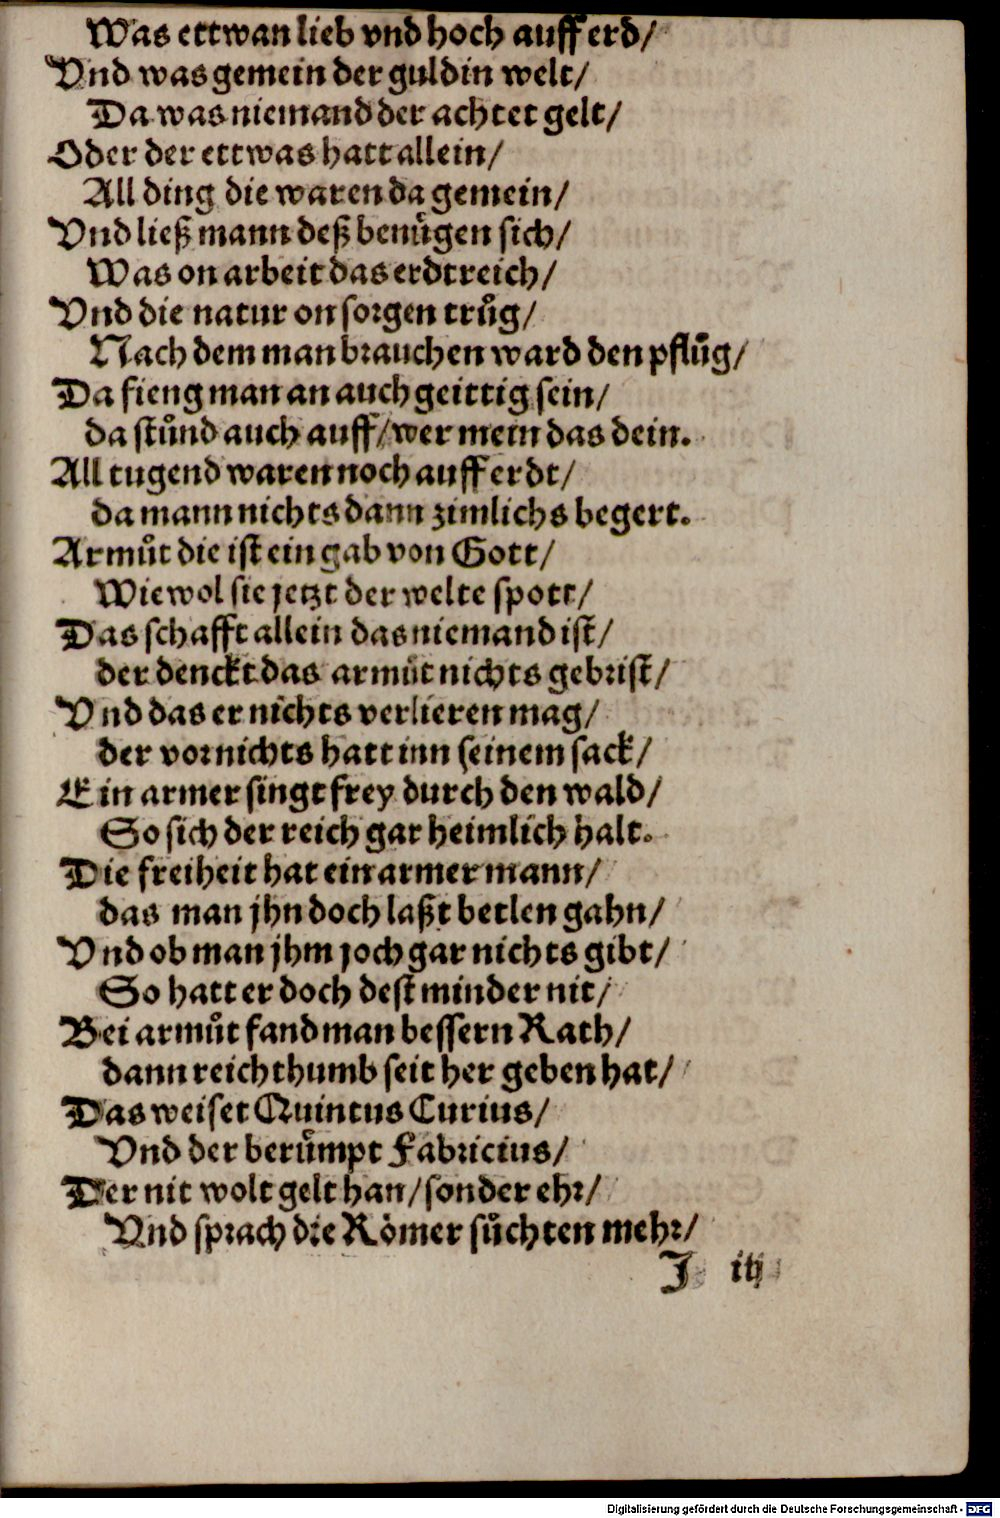 Was ettwan lieb vnd hoch auff erd/
Vnd was gemein der guldin welt/
Da was niemand der achtet gelt/
Oder der ettwas hatt allein/
All ding die waren da gemein/
Vnd ließ mann deß benuͤgen sich/
Was on arbeit das erdtreich/
Vnd die natur on sorgen truͦg/
Nach dem man brauchen ward den pfluͦg/
Da fieng man an auch geittig sein/
da stuͦnd auch auff/wer mein das dein.
All tugend waren noch auff erdt/
da mann nichts dann zimlichs begert.
Armuͦt die ist ein gab von Gott/
Wiewol sie jetzt der welte spott/
Das schafft allein das niemand ist/
der denckt das armuͦt nichts gebrist/
Vnd das er nichts verlieren mag/
der vor nichts hatt inn seinem sack/
Ein armer singt frey durch den wald/
So sich der reich gar heimlich halt.
Die freiheit hat ein armer mann/
das man jhn doch laßt betlen gahn/
Vnd ob man jhm joch gar nichts gibt/
So hatt er doch dest minder nit/
Bei armuͦt fand man bessern Rath/
dann reichthumb seit her geben hat/
Das weiset Quintus Curius/
Vnd der beruͤmpt Fabricius/
Der nit wolt gelt han/sonder ehr/
Vnd sprach die Roͤmer suͦchten mehr/
J iij
Digitalisierung gefördert durch die Deutsche Forschungsgemeinschaft - DFG